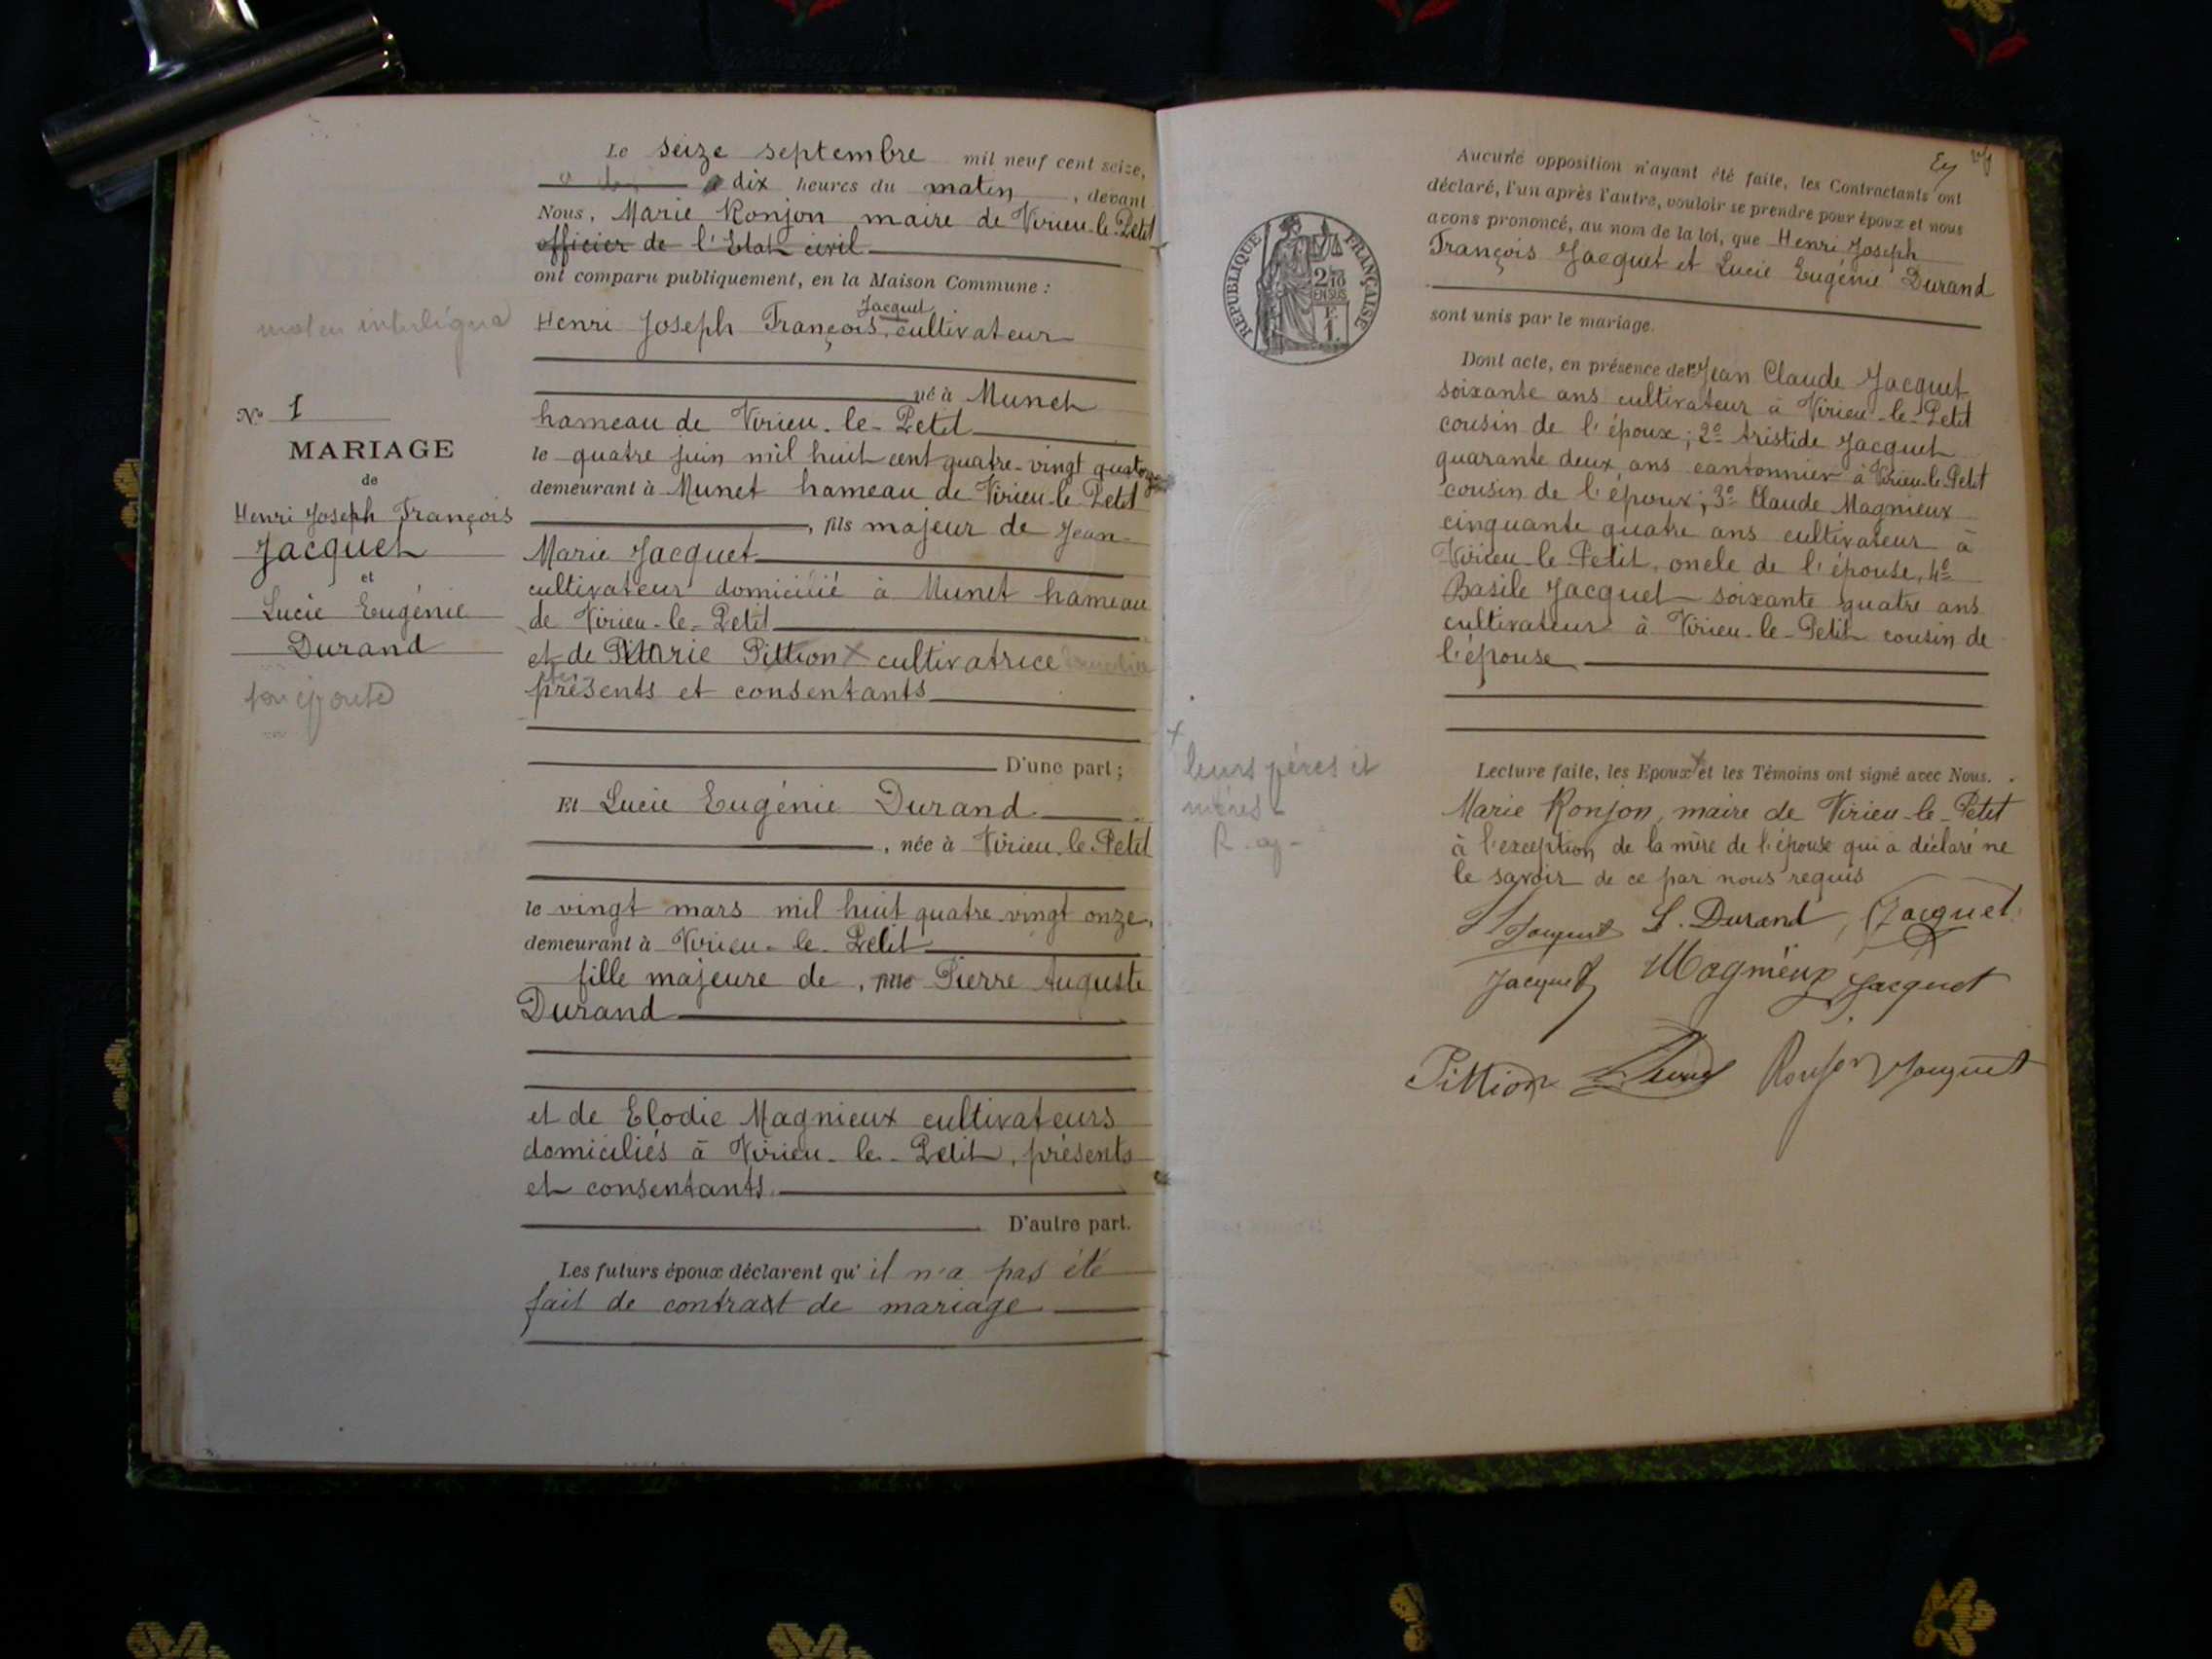 Le seize septembre mil neuf cent seize,
à dix heures du matin, devant
Nous, Marie Ronjon maire de Virieu-le-Petit
officier de l'Etat civil
ont comparu publiquement, en la Maison Commune :
Jacquet
Henri Joseph François, cultivateur
né à Munet
hameau de Virieu-le-Petit
le quatre juin mil huit cent quatre-vingt quatorze
demeurant à Munet hameau de Virieu-le-Petit
, fils majeur de Jean
Marie Jacquet
cultivateur domicilié à Munet hameau
de Virieu-le-Petit
et de Marie Pittion cultivatrice
présents et consentants
D'une part ;
Et Lucie Eugénie Durand
, née à Virieu-le-Petit
le vingt mars mil huit quatre-vingt onze,
demeurant à Virieu-le-Petit
fille majeure de, fille Pierre Auguste
Durand
et de Elodie Magnieux cultivateurs
domiciliés à Virieu-le-Petit, présents
et consentants
D'autre part.
Les futurs époux déclarent qu'il n'a pas été
fait de contrat de mariage
N° 1
MARIAGE
de
Henri Joseph François
Jacquet
et
Lucie Eugénie
Durand
Aucune opposition n'ayant été faite, les Contractants ont
déclaré, l'un après l'autre, vouloir se prendre pour époux et nous
avons prononcé, au nom de la loi, que Henri Joseph
François Jacquet et Lucie Eugénie Durand
sont unis par le mariage.
Dont acte, en présence de 1° Jean Claude Jacquet
soixante ans cultivateur à Virieu-le-Petit
cousin de l'époux ; 2° Aristide Jacquet
quarante deux ans cantonnier à Virieu-le-Petit
cousin de l'époux ; 3° Claude Magnieux
cinquante quatre ans cultivateur à
Virieu-le-Petit, oncle de l'épouse, 4°
Basile Jacquet soixante quatre ans
cultivateur à Virieu-le-Petit cousin de
l'épouse
Lecture faite, les Epoux et les Témoins ont signé avec Nous.
Marie Ronjon, maire de Virieu-le-Petit
à l'exception de la mère de l'épouse qui a déclaré ne
le savoir de ce par nous requis
Jacquet L. Durand, Jacquet
Jacquet Magnieux Jacquet
Pittion Durand Ronjon Jacquet
leurs pères et
mères
RÉPUBLIQUE FRANÇAISE
2/10
EN SUS
F.
1.